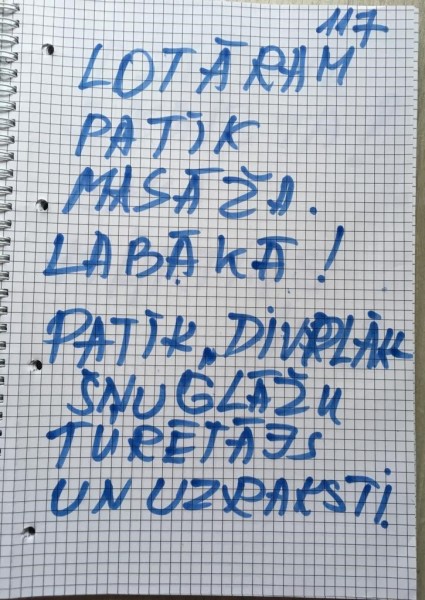 117
LOTĀRAM
PATĪK
MASĀŽA.
LABĀKĀ!
PATĪK
ŠŅUGLĀŽU
TURĒTĀJS
UN UZRAKSTI.